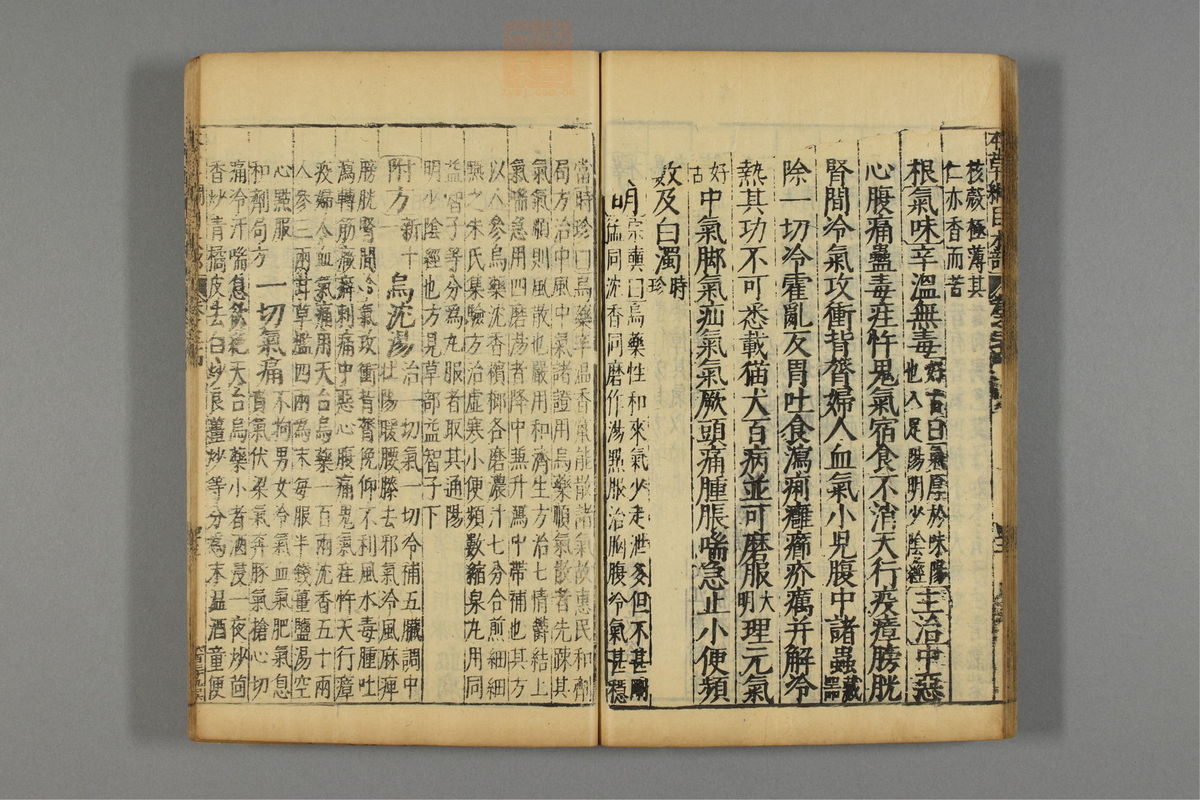 本草綱目木部
核殼極薄其
仁亦香而苦
根氣味辛溫無毒好古曰氣厚於味陽也入足陽明少陰經主治中惡
心腹痛蠱毒疰忤鬼氣宿食不消天行疫瘴膀胱
腎間冷氣攻衝背膂婦人血氣小兒腹中諸蟲藏器
除一切冷霍亂反胃吐食瀉痢癰癤疥癘并解冷
熱其功不可悉載猫犬百病並可磨服大明理元氣
好古中氣脚氣疝氣氣厥頭痛腫脹喘急止小便頻
數及白濁時珍
明宗奭曰烏藥性和來氣少走泄多但不甚剛
猛同沈香同磨作湯點服治胸腹冷氣甚穩
當時珍曰烏藥辛溫香竄能散諸氣故惠民和劑
局方治中風中氣諸證用烏藥順氣散者先疎其
氣氣順則風散也嚴用和濟生方治七情鬱結上
氣喘急用四磨湯者降中兼升瀉中帶補也其方
以人參烏藥沈香檳榔各磨濃汁七分合煎細細
嚥之朱氏集驗方治虛寒小便頻數縮泉丸用同
益智子等分為丸服者取其通陽
明少陰經也方見草部益智子下
附方新十一烏沈湯治一切氣一切冷補五臟調中
壯陽暖腰膝去邪氣冷風麻痺
膀胱腎間冷氣攻衝背膂俛仰不利風水毒腫吐
瀉轉筋癥癖刺痛中惡心腹痛鬼氣疰忤天行瘴
疫婦人血氣痛用天台烏藥一百兩沈香五十兩
人參三兩甘草爁四兩為末每服半錢薑鹽湯空
心點服
和劑局方一切氣痛不拘男女冷氣血氣肥氣息
賁氣伏梁氣奔豚氣搶心切
痛冷汗喘急欲絕天台烏藥小者酒浸一夜炒茴
香炒青橘皮去白炒良薑炒等分為末温酒童便